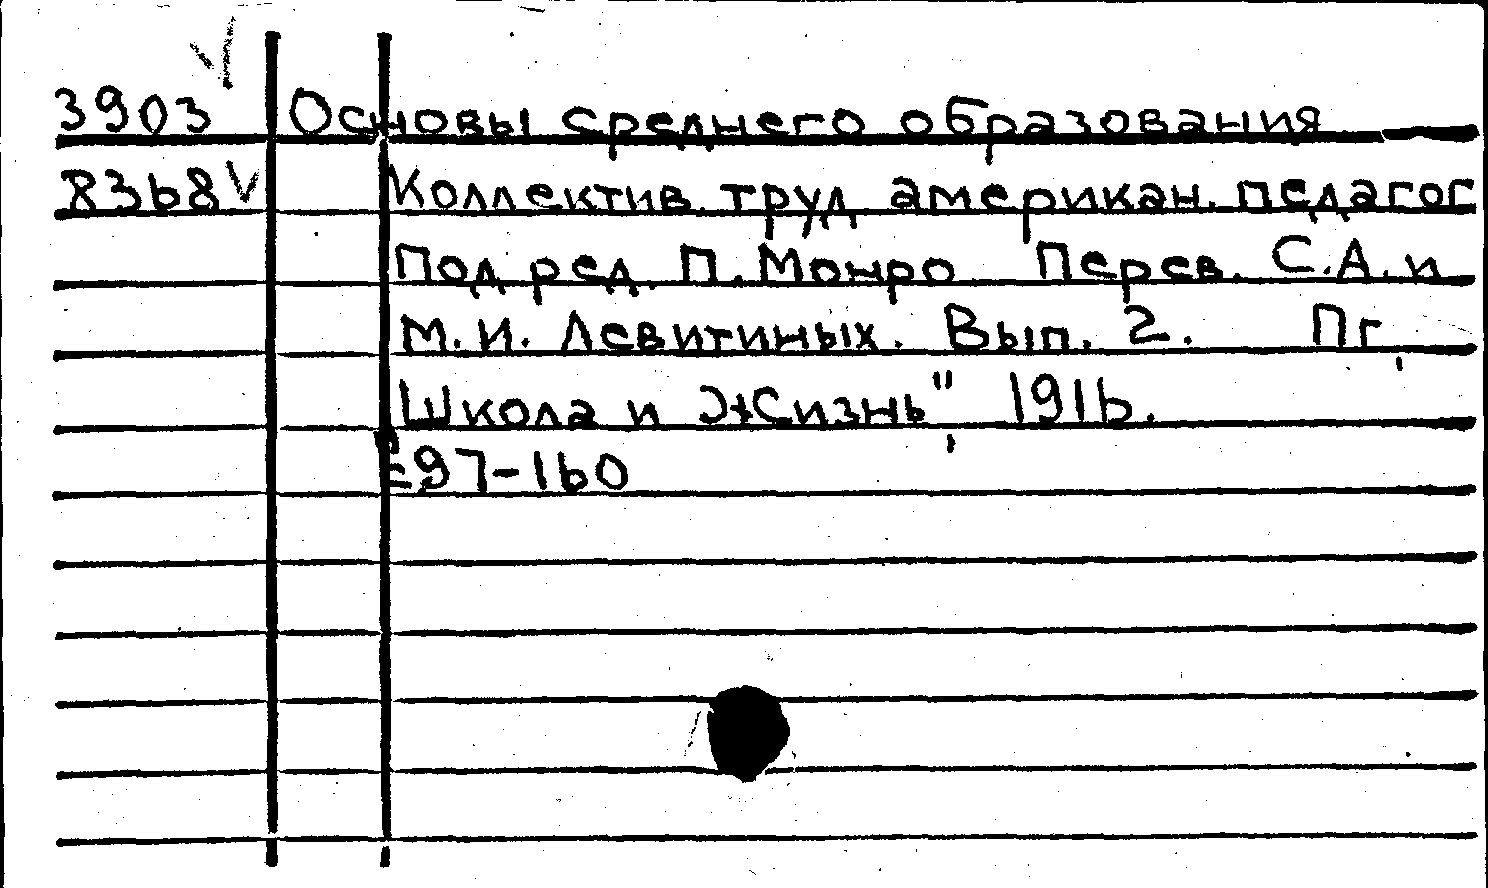 3903 Основы среднего образования
8368 Коллектив. труд американ. педагог
Под ред. П. Монро Перев. С.А. и
М.И. Левитиных. Вып. 2. Пг,
Школа и Жизнь", 1916.
97-160